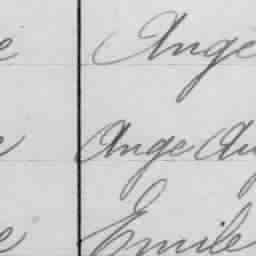 e Ange
e Ange Au
e Emile